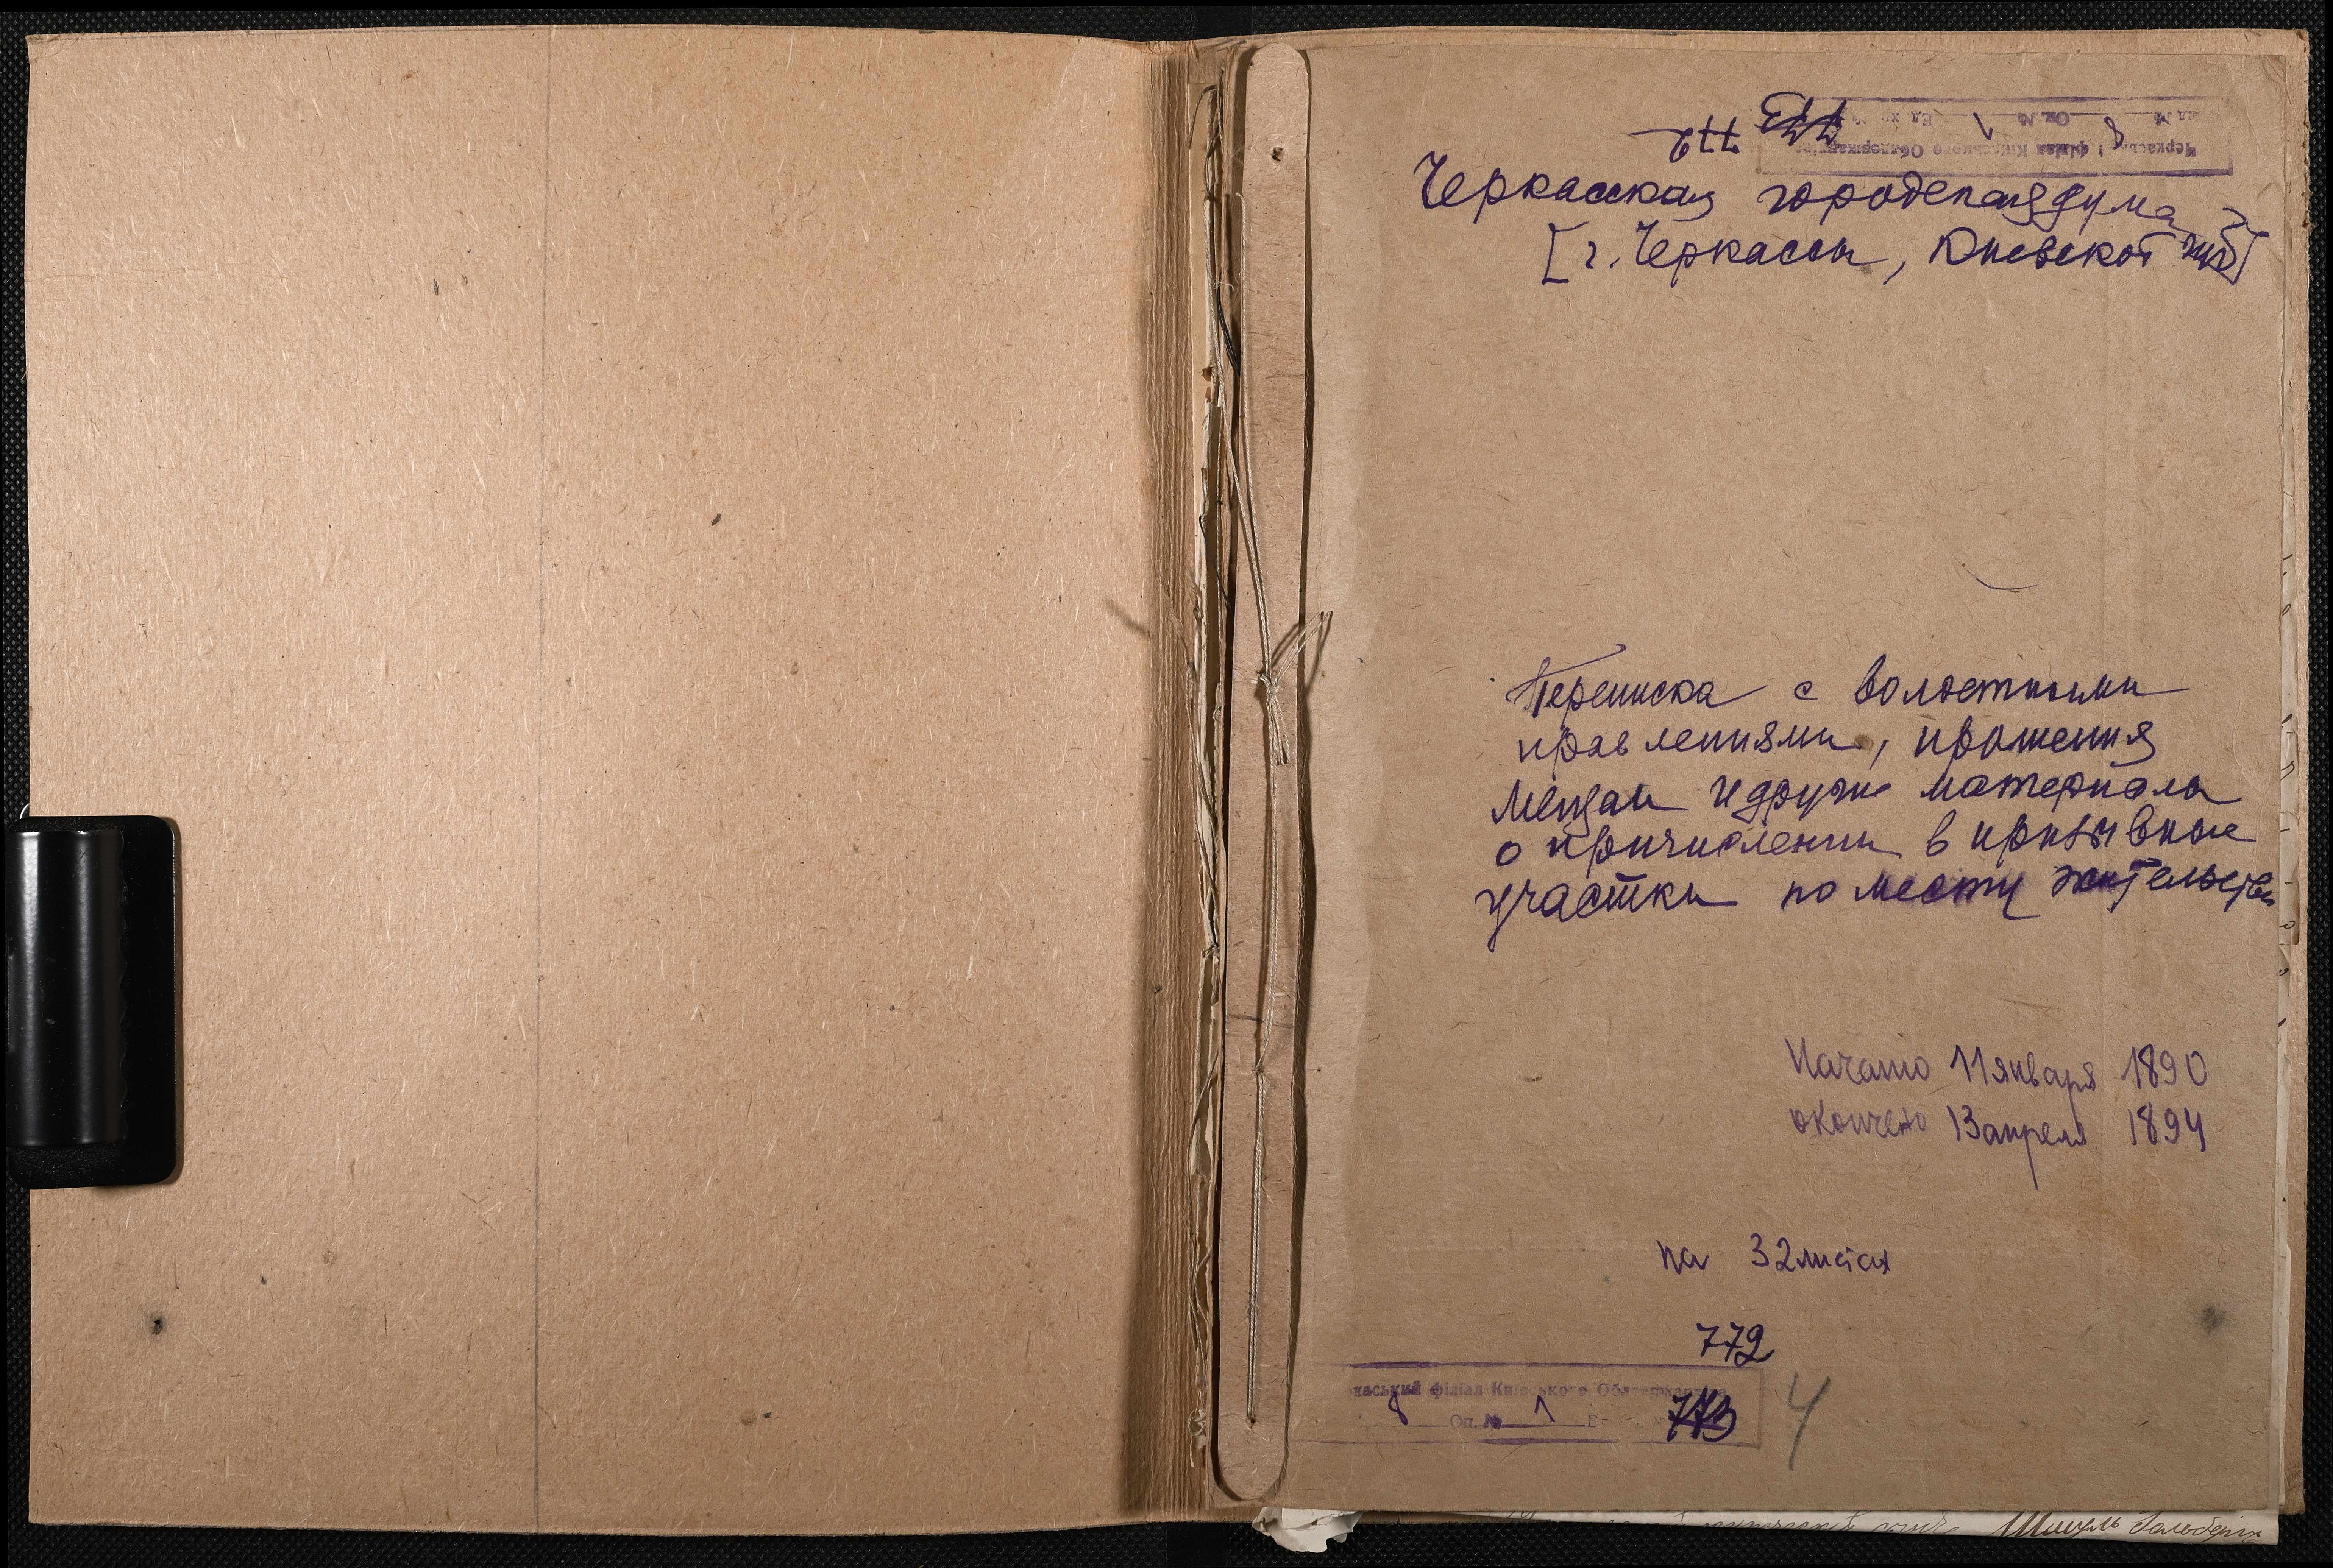 Черкаський філіал Київського Облдержархіву
Оп. № 1 Ед. хр. №
772
Черкасская городская дума
[г. Черкассы, Киевской губ]
Переписка с волостными
правлениями, прошения
мещан и другие материалы
о причислении в призывные
участки по месту жительства
Начато 11 января 1890
окончено 13 апреля 1894
на 32 листах
772
каський філіал Київського Облдержархіву
8 Оп. № 1
773
4
Шмуль